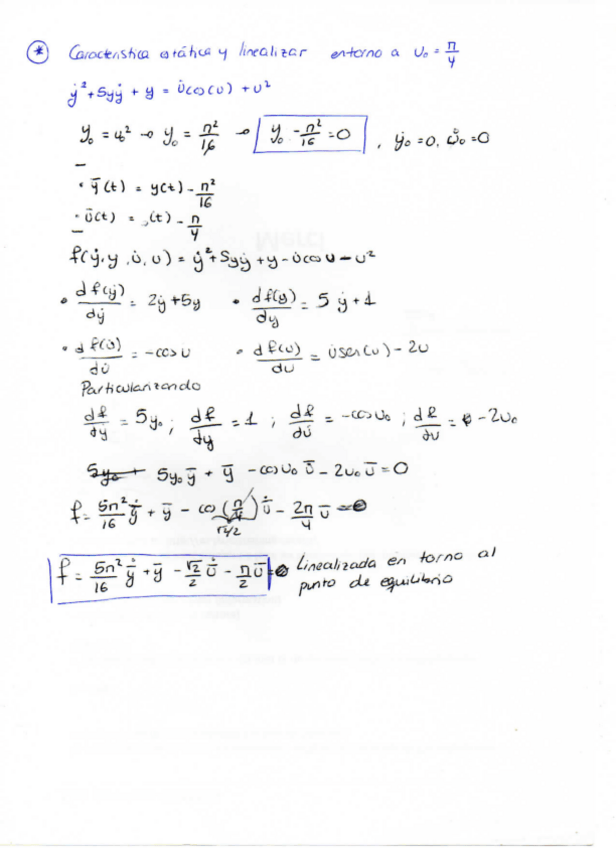 * Característica estática y linealizar entorno a u₀ = π/4
ẏ² + 5yẏ + y = u̇cos(u) + u²
y₀ = u₀² → y₀ = π²/16 → y₀ - π²/16 = 0 , ẏ₀ = 0, u̇₀ = 0
• ȳ(t) = y(t) - π²/16
• ū(t) = (t) - π/4
f(ẏ, y, u̇, u) = ẏ² + 5yẏ + y - u̇cos u - u²
• df(ẏ)/dẏ = 2ẏ + 5y • df(y)/dy = 5ẏ + 1
• df(u̇)/du̇ = -cos u • df(u)/du = u̇sen(u) - 2u
Particularizando
df/dẏ = 5y₀ ; df/dy = 1 ; df/du̇ = -cos u₀ ; df/du = -2u₀
5y₀ȳ + ȳ - cos u₀ ū - 2u₀ū = 0
f = 5π²/16 ȳ̇ + ȳ - cos(π/4) ū̇ - 2π/4 ū = 0
√2/2
f = 5π²/16 ȳ̇ + ȳ - √2/2 ū̇ - π/2 ū = 0 Linealizada en torno al
punto de equilibrio